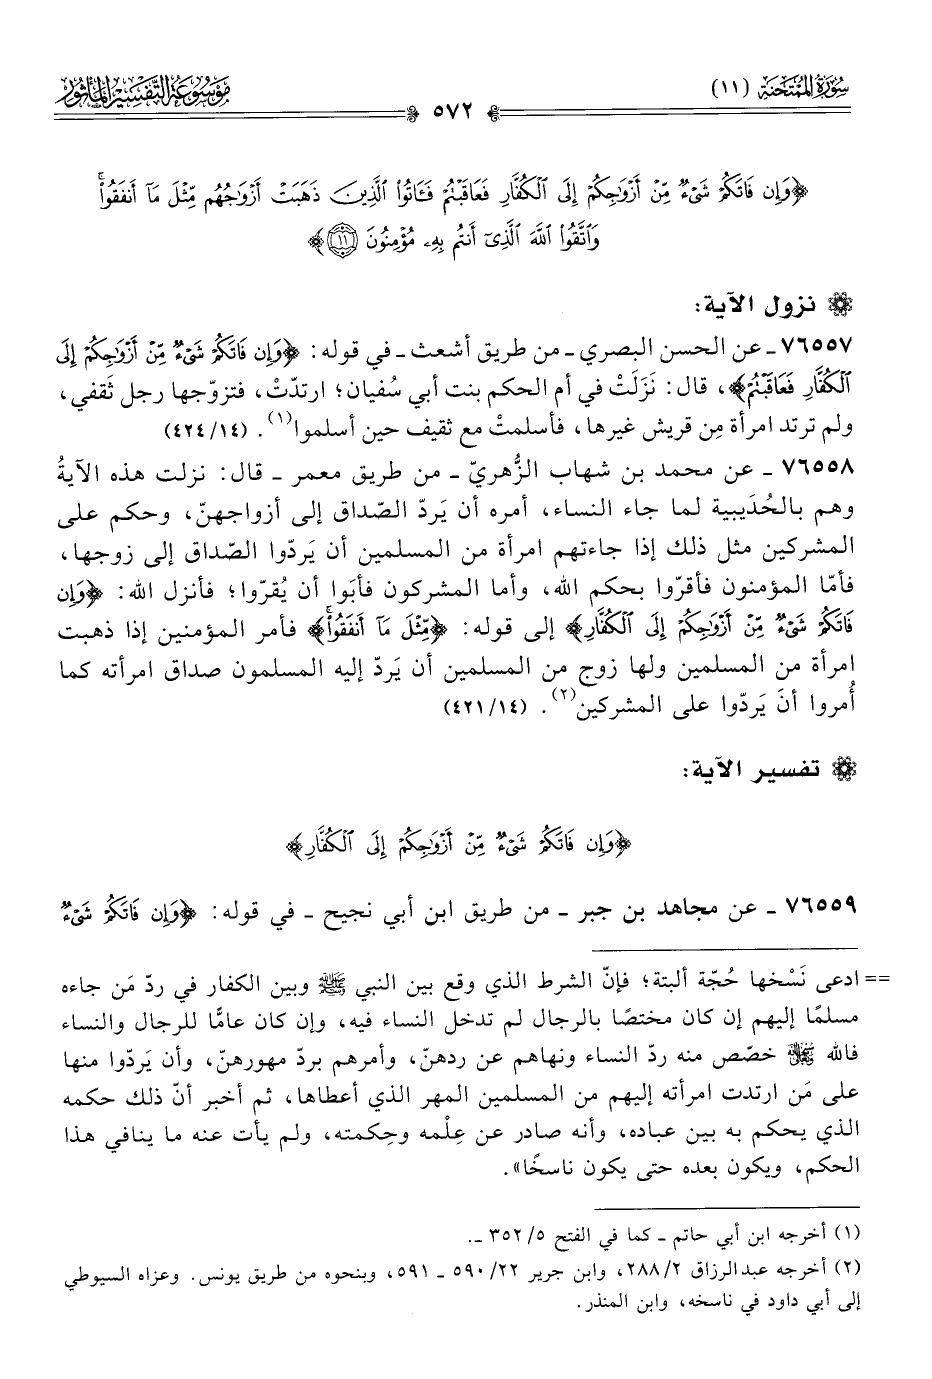 سُورَةُ المُمْتَحنَة (١١)
٥٧٢
مَوْسُوعَةُ التَّفْسِيرِ المَأْثُورِ
﴿وَإِن فَاتَكُمْ شَىْءٌ مِّنْ أَزْوَٰجِكُمْ إِلَى ٱلْكُفَّارِ فَعَاقَبْتُمْ فَـَٔاتُوا۟ ٱلَّذِينَ ذَهَبَتْ أَزْوَٰجُهُم مِّثْلَ مَآ أَنفَقُوا۟ۚ
وَٱتَّقُوا۟ ٱللَّهَ ٱلَّذِىٓ أَنتُم بِهِۦ مُؤْمِنُونَ ١١﴾
نزول الآية:
٧٦٥٥٧ ـ عن الحسن البصري ـ من طريق أشعث ـ في قوله: ﴿وَإِن فَاتَكُمْ شَىْءٌ مِّنْ أَزْوَٰجِكُمْ إِلَى
ٱلْكُفَّارِ فَعَاقَبْتُمْ﴾، قال: نَزَلَتْ في أم الحكم بنت أبي سُفيان؛ ارتدّتْ، فتزوّجها رجل ثَقفي،
ولم ترتد امرأة مِن قريش غيرها، فأسلمتْ مع ثقيف حين أسلموا(١). (١٤/ ٤٢٤)
٧٦٥٥٨ ـ عن محمد بن شهاب الزُّهريّ ـ من طريق معمر ـ قال: نزلت هذه الآيةُ
وهم بالحُدَيبية لما جاء النساء، أمره أن يَردّ الصّداق إلى أزواجهنّ، وحكم على
المشركين مثل ذلك إذا جاءتهم امرأة من المسلمين أن يَردّوا الصّداق إلى زوجها،
فأمّا المؤمنون فأقرّوا بحكم الله، وأما المشركون فأبَوا أن يُقرّوا؛ فأنزل الله: ﴿وَإِن
فَاتَكُمْ شَىْءٌ مِّنْ أَزْوَٰجِكُمْ إِلَى ٱلْكُفَّارِ﴾ إلى قوله: ﴿مِّثْلَ مَآ أَنفَقُوا۟ۚ﴾ فأمر المؤمنين إذا ذهبت
امرأة من المسلمين ولها زوج من المسلمين أن يَردّ إليه المسلمون صداق امرأته كما
أُمروا أن يَردّوا على المشركين(٢). (١٤/ ٤٢١)
تفسير الآية:
﴿وَإِن فَاتَكُمْ شَىْءٌ مِّنْ أَزْوَٰجِكُمْ إِلَى ٱلْكُفَّارِ﴾
٧٦٥٥٩ ـ عن مجاهد بن جبر ـ من طريق ابن أبي نجيح ـ في قوله: ﴿وَإِن فَاتَكُمْ شَىْءٌ
== ادعى نَسْخها حُجّة ألبتة؛ فإنّ الشرط الذي وقع بين النبي ﷺ وبين الكفار في ردّ مَن جاءه
مسلمًا إليهم إن كان مختصًا بالرجال لم تدخل النساء فيه، وإن كان عامًّا للرجال والنساء
فالله ﷻ خصّص منه ردّ النساء ونهاهم عن ردهنّ، وأمرهم بردّ مهورهنّ، وأن يَردّوا منها
على مَن ارتدت امرأته إليهم من المسلمين المهر الذي أعطاها، ثم أخبر أنّ ذلك حكمه
الذي يحكم به بين عباده، وأنه صادر عن عِلْمه وحِكمته، ولم يأت عنه ما ينافي هذا
الحكم، ويكون بعده حتى يكون ناسخًا».
(١) أخرجه ابن أبي حاتم ـ كما في الفتح ٥/ ٣٥٢ ـ.
(٢) أخرجه عبد الرزاق ٢/ ٢٨٨، وابن جرير ٢٢/ ٥٩٠ ـ ٥٩١، وبنحوه من طريق يونس. وعزاه السيوطي
إلى أبي داود في ناسخه، وابن المنذر.